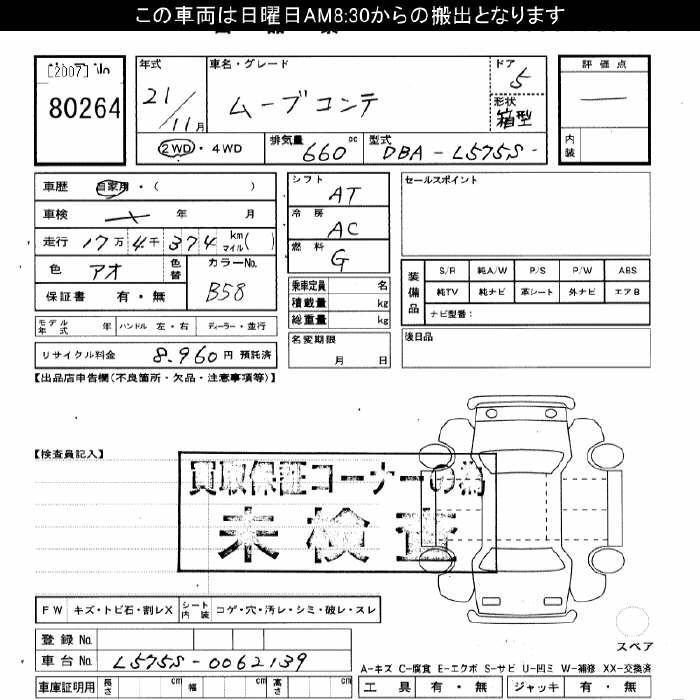 この車両は日曜日AM8:30からの搬出となります
[2007] No
80264
年式 21/11月
車名・グレード ムーブコンテ
ドア 5
形状 箱型
2WD・4WD
排気量 660 cc
型式 DBA-L575S-
評価点 —
内装
車歴 自家用・( )
車検 年 月
走行 17万4千374 km マイル( )
色 アオ 色替
カラーNo. B58
保証書 有・無
モデル年式 年 ハンドル 左・右 ディーラー・並行
リサイクル料金 8.960円 預託済
シフト AT
冷房 AC
燃料 G
乗車定員 名
積載量 kg
総重量 kg
名変期限 月 日
セールスポイント
装備品
S/R 純A/W P/S P/W ABS
純TV 純ナビ 革シート 外ナビ エアB
ナビ型番:
後日品
【出品店申告欄(不良箇所・欠品・注意事項等)】
【検査員記入】
買取保証コーナーの為
未検査
FW キズ・トビ石・割レX シート内装 コゲ・穴・汚レ・シミ・破レ・スレ
スペア
登録No.
車台No. L575S-0062139
A-キズ C-腐食 E-エクボ S-サビ U-凹ミ W-補修 XX-交換済
車庫証明用 長さ cm 幅 cm 高さ cm
工具 有・無 ジャッキ 有・無